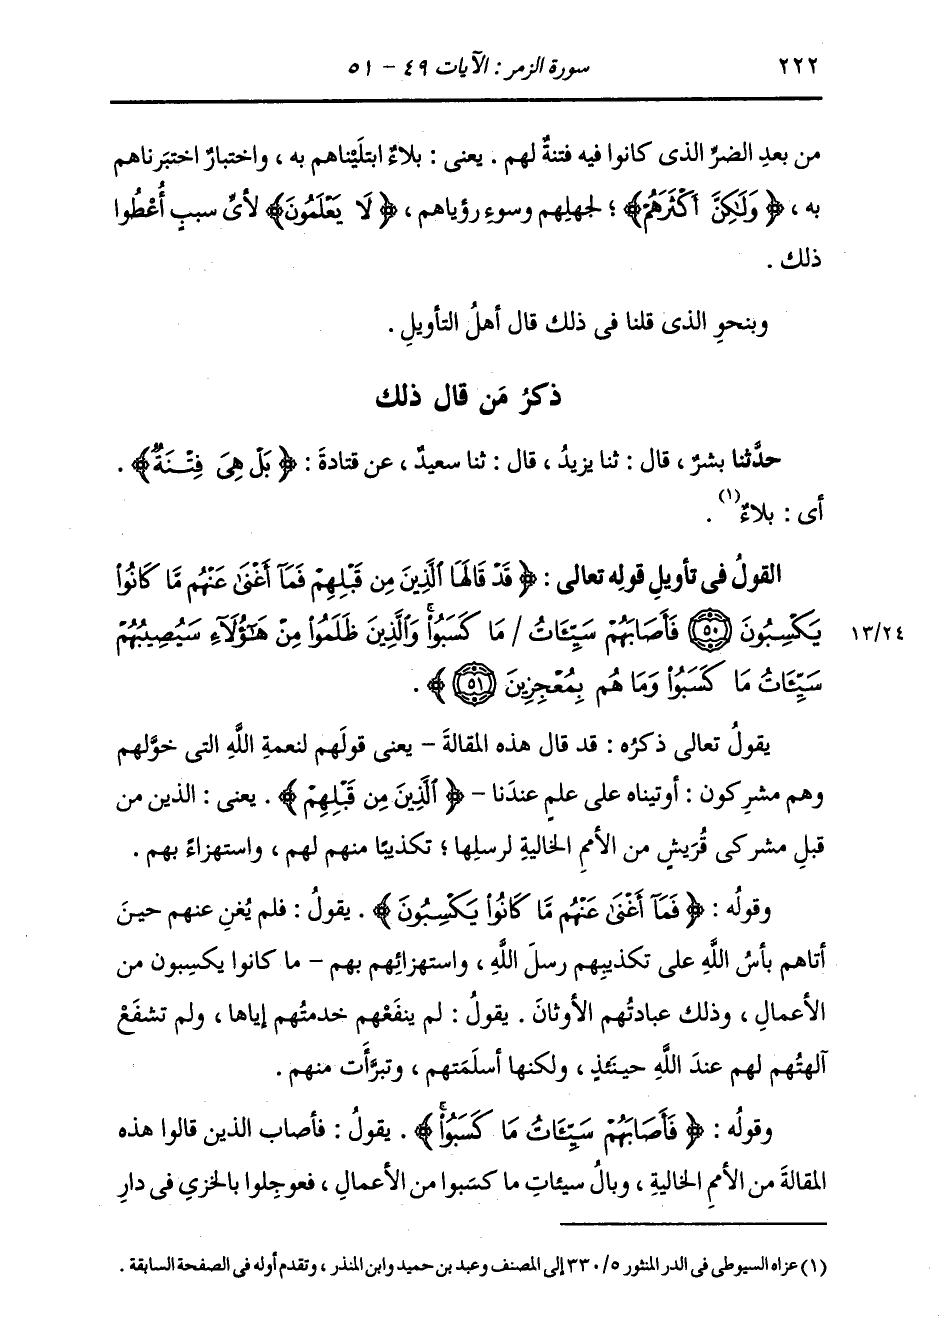 ٢٢٢ سورة الزمر : الآيات ٤٩ - ٥١
من بعدِ الضرِّ الذى كانوا فيه فتنةٌ لهم . يعنى : بلاءٌ ابتلَيْناهم به ، واختبارٌ اختبَرناهم
به ، ﴿ وَلَٰكِنَّ أَكْثَرَهُمْ ﴾ ؛ لجهلِهم وسوءِ رؤياهم ، ﴿ لَا يَعْلَمُونَ ﴾ لأىِّ سببٍ أُعْطُوا
ذلك .
وبنحوِ الذى قلنا فى ذلك قال أهلُ التأويلِ .
ذكرُ مَن قال ذلك
حدَّثنا بشرٌ ، قال : ثنا يزيدُ ، قال : ثنا سعيدٌ ، عن قتادةَ : ﴿ بَلْ هِىَ فِتْنَةٌ ﴾ .
أى : بلاءٌ(١) .
القولُ فى تأويلِ قولِه تعالى : ﴿ قَدْ قَالَهَا ٱلَّذِينَ مِن قَبْلِهِمْ فَمَآ أَغْنَىٰ عَنْهُم مَّا كَانُوا۟
يَكْسِبُونَ ٥٠ فَأَصَابَهُمْ سَيِّـَٔاتُ / مَا كَسَبُوا۟ ۚ وَٱلَّذِينَ ظَلَمُوا۟ مِنْ هَـٰٓؤُلَآءِ سَيُصِيبُهُمْ ١٣/٢٤
سَيِّـَٔاتُ مَا كَسَبُوا۟ وَمَا هُم بِمُعْجِزِينَ ٥١ ﴾ .
يقولُ تعالى ذكرُه : قد قال هذه المقالةَ - يعنى قولَهم لنعمةِ اللَّهِ التى خوَّلهم
وهم مشرِكون : أوتيناه على علمٍ عندَنا - ﴿ ٱلَّذِينَ مِن قَبْلِهِمْ ﴾ . يعنى : الذين من
قبلِ مشركى قُرَيشٍ من الأممِ الخاليةِ لرسلِها ؛ تكذيبًا منهم لهم ، واستهزاءً بهم .
وقولُه : ﴿ فَمَآ أَغْنَىٰ عَنْهُم مَّا كَانُوا۟ يَكْسِبُونَ ﴾ . يقولُ : فلم يُغنِ عنهم حينَ
أتاهم بأسُ اللَّهِ على تكذيبِهم رسلَ اللَّهِ ، واستهزائِهم بهم - ما كانوا يكسِبون من
الأعمالِ ، وذلك عبادتُهم الأوثانَ . يقولُ : لم ينفَعْهم خدمتُهم إياها ، ولم تشفَعْ
آلهتُهم لهم عندَ اللَّهِ حينَئذٍ ، ولكنها أسلَمَتهم ، وتبرَّأَت منهم .
وقولُه : ﴿ فَأَصَابَهُمْ سَيِّـَٔاتُ مَا كَسَبُوا۟ ۚ ﴾ . يقولُ : فأصاب الذين قالوا هذه
المقالةَ من الأممِ الخاليةِ ، وبالُ سيئاتِ ما كسَبوا من الأعمالِ ، فعوجِلوا بالخزيِ فى دارِ
(١) عزاه السيوطى فى الدر المنثور ٣٣٠/٥ إلى المصنف وعبد بن حميد وابن المنذر ، وتقدم أوله فى الصفحة السابقة .